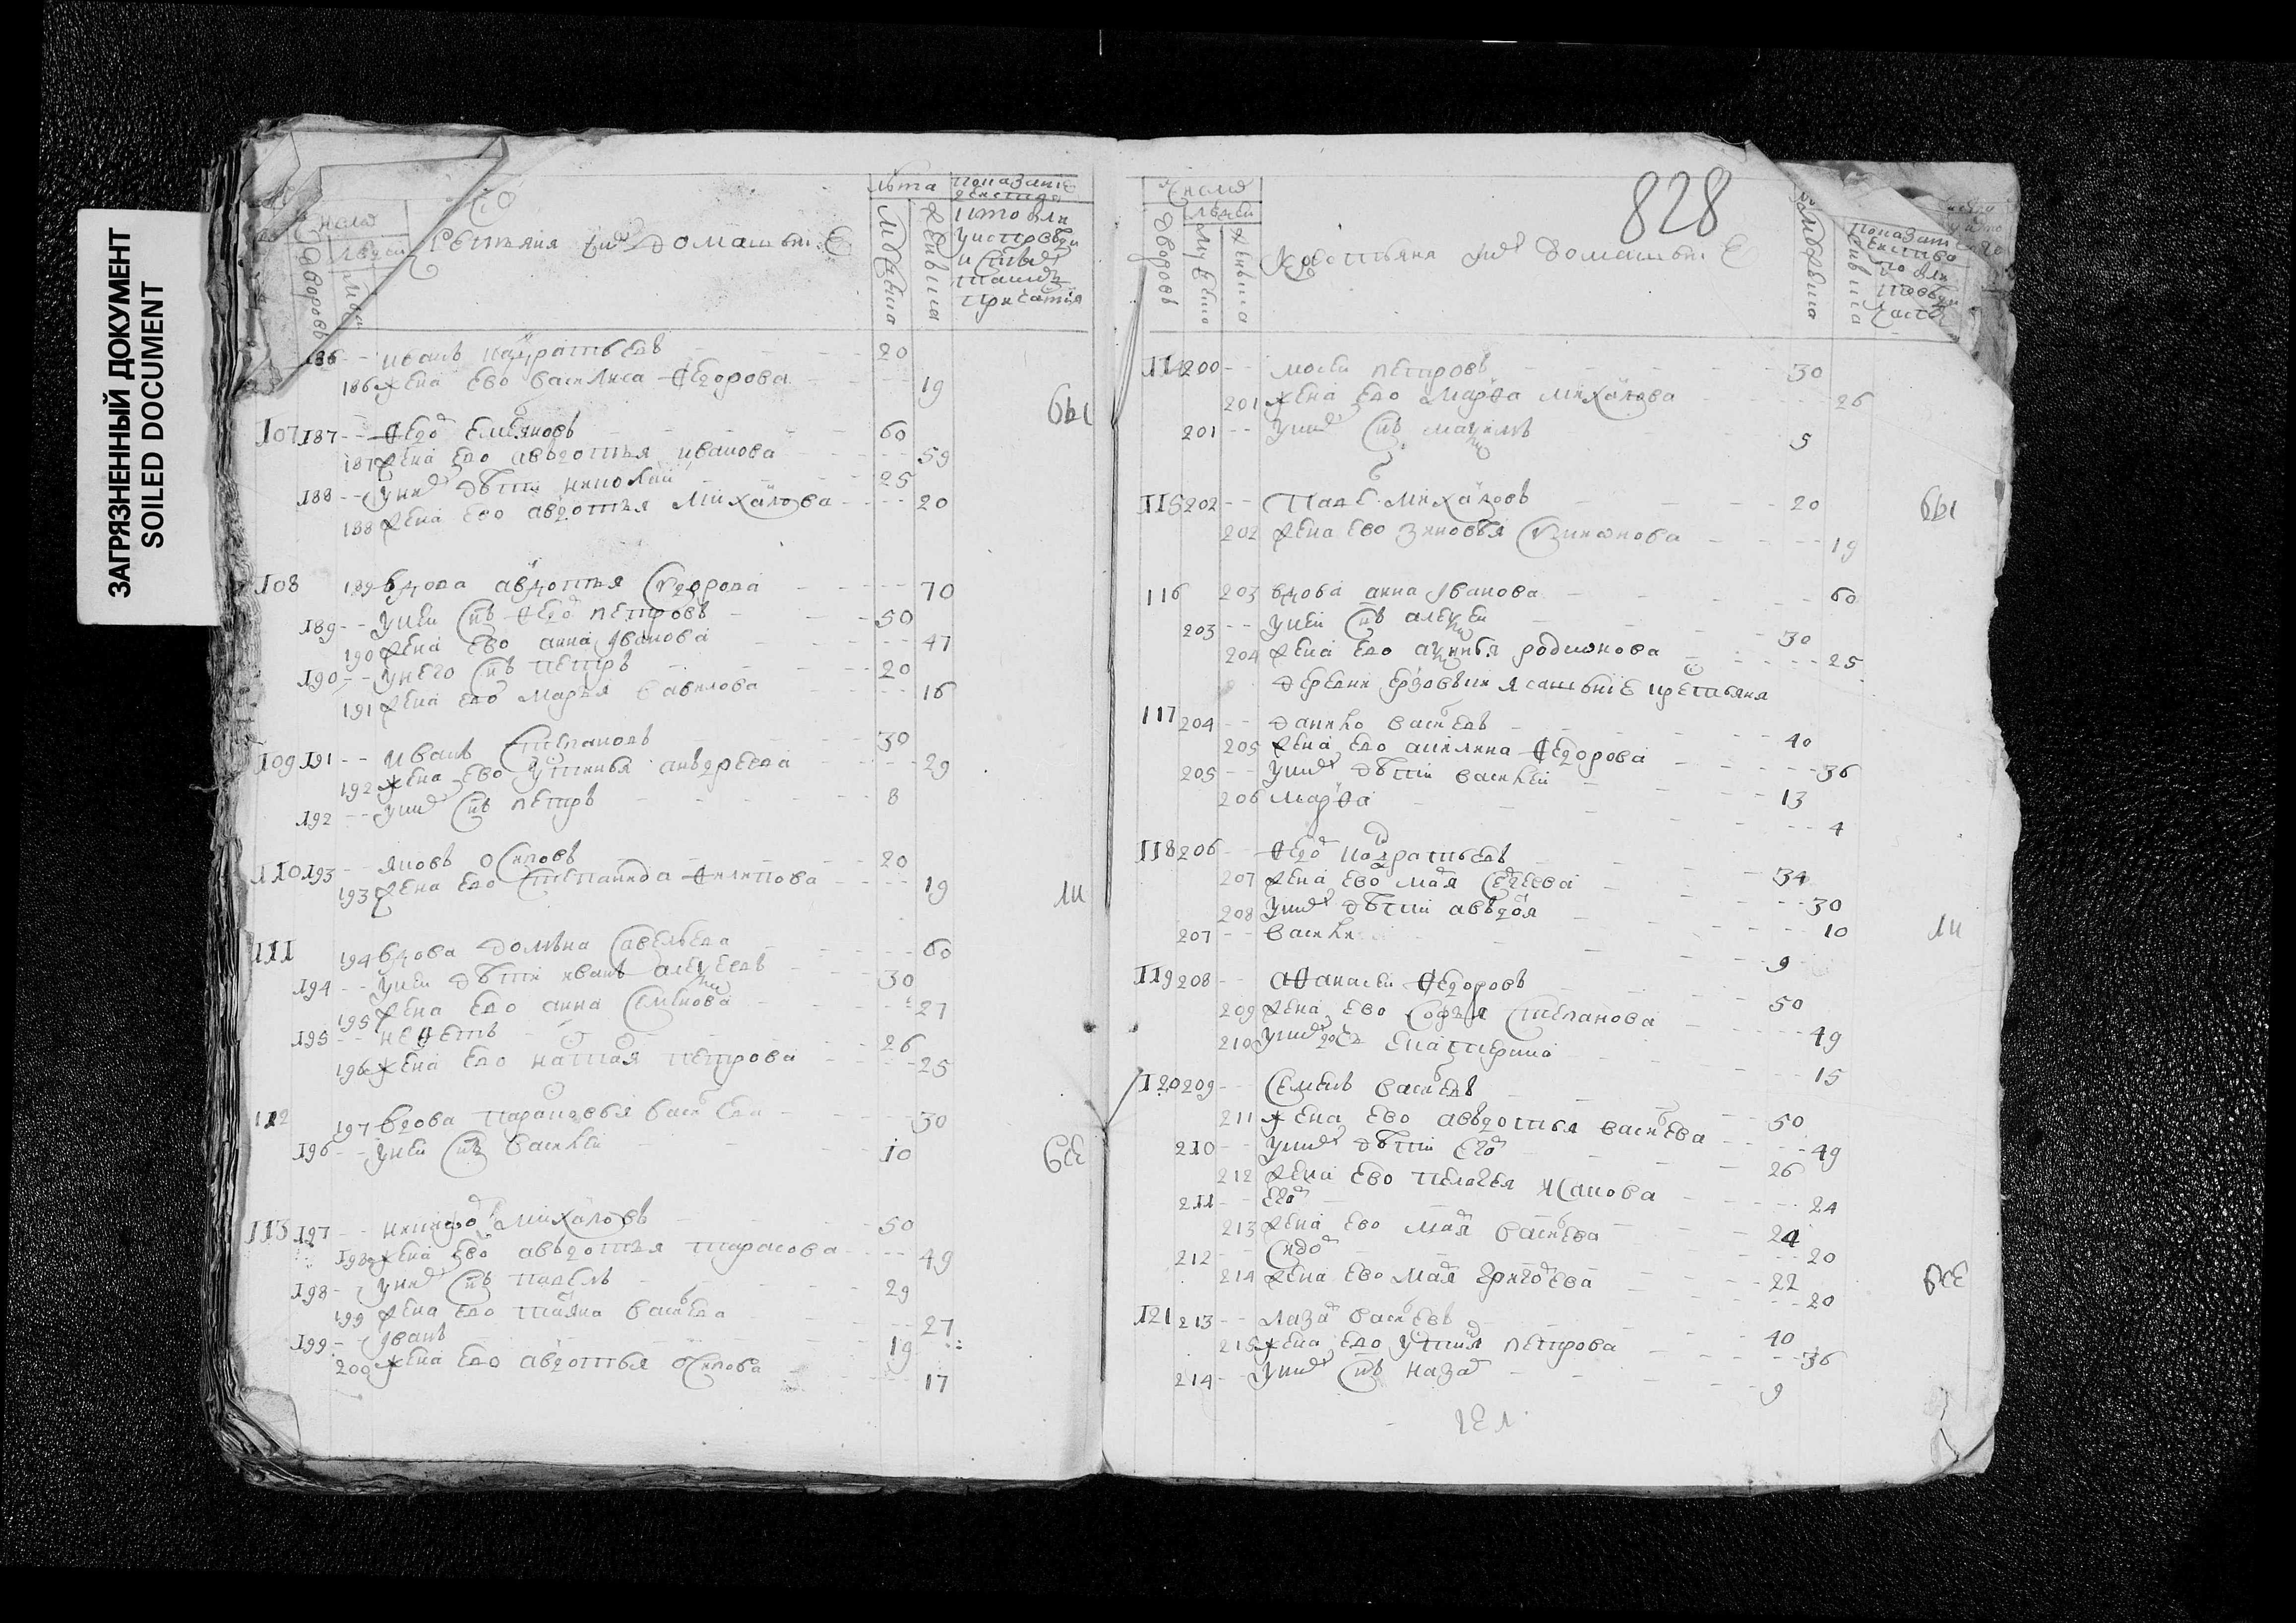 ЗАГРЯЗНЕННЫЙ ДОКУМЕНТ
SOILED DOCUMENT
число
людей
дворовъ
крестьяня и ихъ домашние
лѣта
мужеска
женьска
показание
186 -- иванъ кандратьевъ 20
186 жена ево василиса федорова 19
107 187 -- федоръ емельяновъ 60
187 жена ево авдотья иванова 59
188 -- у них дѣти николай 25
188 жена ево авдотья михайлова 20
бы
108 189 вдова авдотья сидорова 70
189 -- у неи сынъ федоръ петровъ 50
190 жена ево анна иванова 47
190 -- у него сынъ петръ 20
191 жена ево марья савелова 16
109 191 -- иванъ степановъ 30
192 жена ево устинья анъдреева 29
192 -- у них сынъ петръ 8
110 193 -- яковъ осиповъ 20
193 жена ево степанида филипова 19
ли
111 194 вдова домъна савельева 60
194 -- у неи дѣти иванъ алексеевъ 30
195 жена ево анна семенова 27
195 -- нефетъ 26
196 жена ево наталя петрова 25
112 197 вдова парасковья васильева 30
196 -- у неи сынъ василей 10
все
113 197 -- никифоръ михайловъ 50
198 жена ево авъдотья тарасова 49
198 -- у них сынъ павелъ 29
199 жена ево татьяна васильева 27
199 -- иванъ 19
200 жена ево авдотья осипова 17
828
число
людей
дворовъ
мужеска
женьска
крестьяня и ихъ домашние
114 200 -- мосеи петровъ 30
201 жена ево марфа михайлова 26
201 -- у них сынъ максимъ 5
115 202 -- павелъ михайловъ 20
202 жена ево зиновья 19
бы
116 203 вдова анна иванова 60
203 -- у неи сынъ алексеи 30
204 жена ево аксинья родионова 25
деревни ерзовъки ясашьние крестьяня
117 204 -- данило васильевъ 40
205 жена ево акилина федорова 36
205 -- у них дѣти василеи 13
206 марфа 4
118 206 -- федоръ кондратьевъ 34
207 жена ево марья сергеева 30
208 у них дѣти авъдотья 10
207 -- василей 9
ли
119 208 -- афанасеи федоровъ 50
209 жена ево софья степанова 49
210 у них дочь екатерина 15
120 209 -- семенъ васильевъ 50
211 жена ево авъдотья васильева 49
210 -- у них дѣти егоръ 26
212 жена ево пелагея исакова 24
211 -- егоръ 24
213 жена ево марья васильева 20
212 -- сидоръ 22
214 жена ево марья григорьева 20
все
121 213 -- лазарь васильевъ 40
215 жена ево устинья петрова 36
214 -- у них сынъ назаръ 9